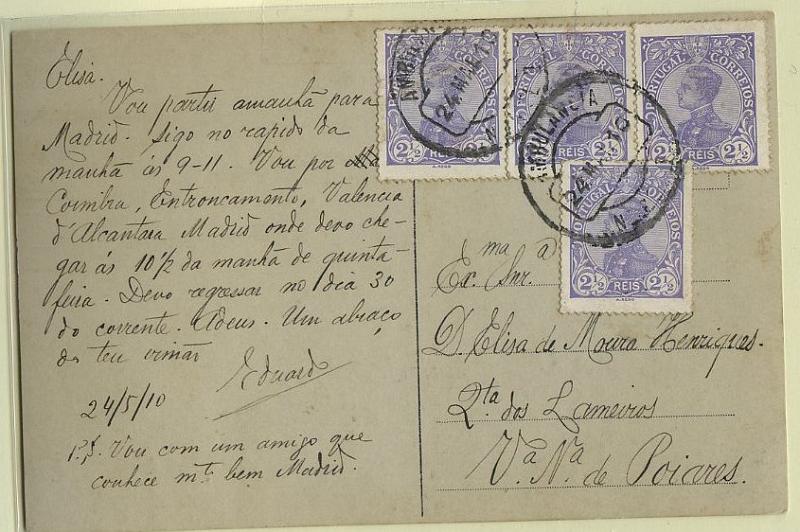 Elisa.
Vou partir amanhã para
Madrid. Sigo no rapido da
manhã ás 9-11. Vou por
Coimbra, Entroncamento, Valencia
d'Alcantara Madrid onde devo che-
gar ás 10 1/2 da manhã de quinta-
feira. Devo regressar no dia 30
do corrente. Adeus. Um abraço
do teu irmão
Eduardo
24/5/10
P.S. Vou com um amigo que
conhece mto bem Madrid.
PORTUGAL CORREIOS
2½ REIS 2½
PORTUGAL CORREIOS
2½ REIS 2½
PORTUGAL CORREIOS
2½ 2½
PORTUGAL CORREIOS
2½ REIS 2½
AMBULANCIA
24 MAI 10
AMBULANCIA
24 MAI 10
N
Exma Snra
D. Elisa de Moura Henriques.
Qta dos Lameiros
Va Na de Poiares.